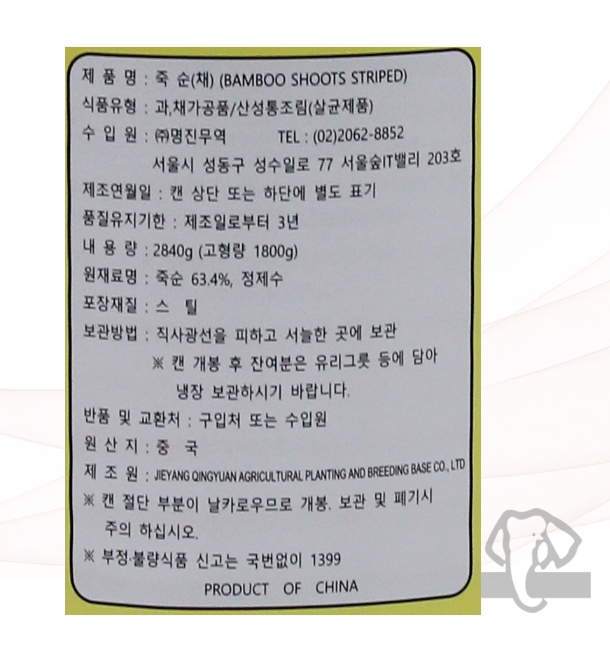 제 품 명 : 죽 순(채) (BAMBOO SHOOTS STRIPED)
식품유형 : 과,채가공품/산성통조림(살균제품)
수 입 원 : ㈜명진무역 TEL : (02)2062-8852
서울시 성동구 성수일로 77 서울숲IT밸리 203호
제조연월일 : 캔 상단 또는 하단에 별도 표기
품질유지기한 : 제조일로부터 3년
내 용 량 : 2840g (고형량 1800g)
원재료명 : 죽순 63.4%, 정제수
포장재질 : 스 틸
보관방법 : 직사광선을 피하고 서늘한 곳에 보관
※ 캔 개봉 후 잔여분은 유리그릇 등에 담아
냉장 보관하시기 바랍니다.
반품 및 교환처 : 구입처 또는 수입원
원 산 지 : 중 국
제 조 원 : JIEYANG QINGYUAN AGRICULTURAL PLANTING AND BREEDING BASE CO., LTD
※ 캔 절단 부분이 날카로우므로 개봉. 보관 및 폐기시
주의 하십시오.
※ 부정·불량식품 신고는 국번없이 1399
PRODUCT OF CHINA